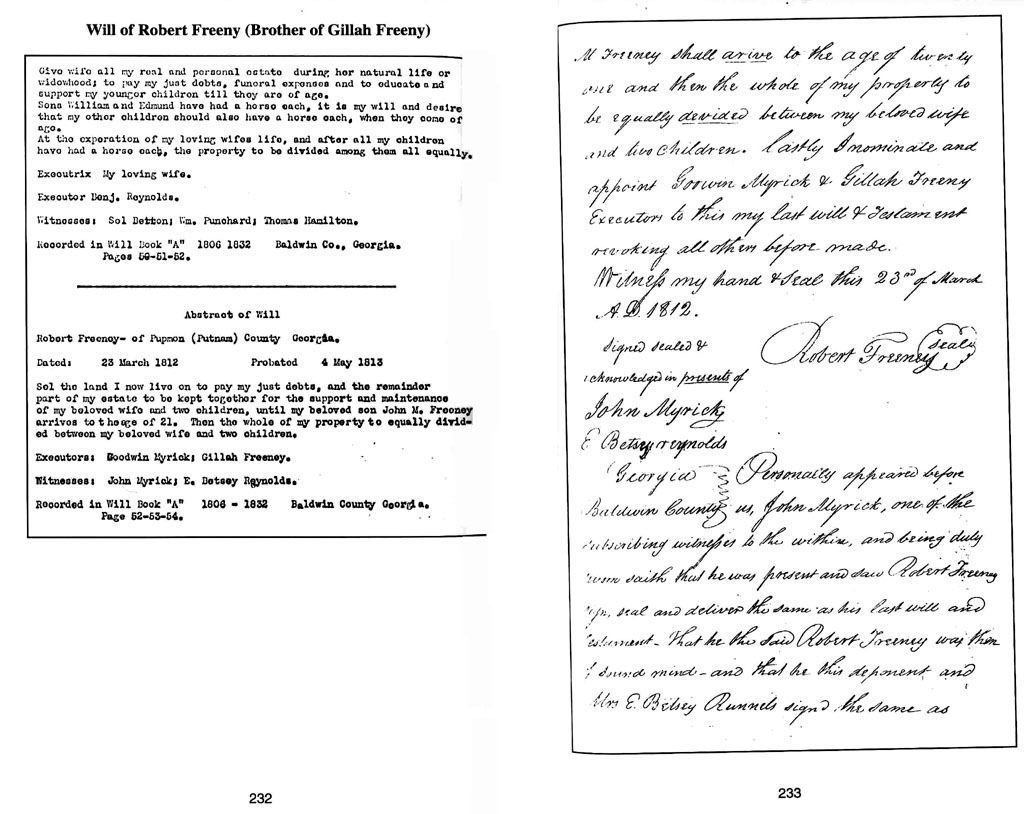 Will of Robert Freeny (Brother of Gillah Freeny)
Give wife all my real and personal estate during her natural life or
widowhood; to pay my just debts, funeral expenses and to educate and
support my younger children till they are of age.
Sons William and Edmund have had a horse each, it is my will and desire
that my other children should also have a horse each, when they come of
age.
At the experation of my loving wifes life, and after all my children
have had a horse each, the property to be divided among them all equally.
Executrix My loving wife.
Executor Benj. Reynolds.
Witnesses: Sol Betton; Wm. Punchard; Thomas Hamilton.
Recorded in Will Book "A" 1806 1832 Baldwin Co., Georgia.
Pages 50-51-52.
Abstract of Will
Robert Freeney- of Pupmon (Putnam) County Georgia.
Dated: 23 March 1812 Probated 4 May 1813
Sel the land I now live on to pay my just debts, and the remainder
part of my estate to be kept together for the support and maintenance
of my beloved wife and two children, until my beloved son John M. Freeney
arrives to the age of 21. Then the whole of my property to equally divid-
ed between my beloved wife and two children.
Executors: Goodwin Myrick; Gillah Freeney.
Witnesses: John Myrick; E. Betsey Reynolds.
Recorded in Will Book "A" 1806 - 1832 Baldwin County Georgia.
Page 52-53-54.
232
M Freeney shall arive to the age of twenty
one and then the whole of my property to
be equally devided between my beloved wife
and two Children. Lastly I nominate and
appoint Goowin Myrick & Gillah Freeny
Executors to this my last will & Testament
revoking all others before made.
Witness my hand & Seal this 23rd of March
A.D. 1812.
Signed sealed &
Robert Freeney Seal
acknowledged in presents of
John Myrick
E Betsey reynolds
Georgia
Baldwin County
Personally appeared before
us, John Myrick, one of the
subscribing witnesses to the within, and being duly
sworn saith that he was present and saw Robert Freeney
sign, seal and deliver the same as his last will and
testament - that he the said Robert Freeney was then
of sound mind - and that he this deponent and
Mrs E. Betsey Runnels signd the same as
233